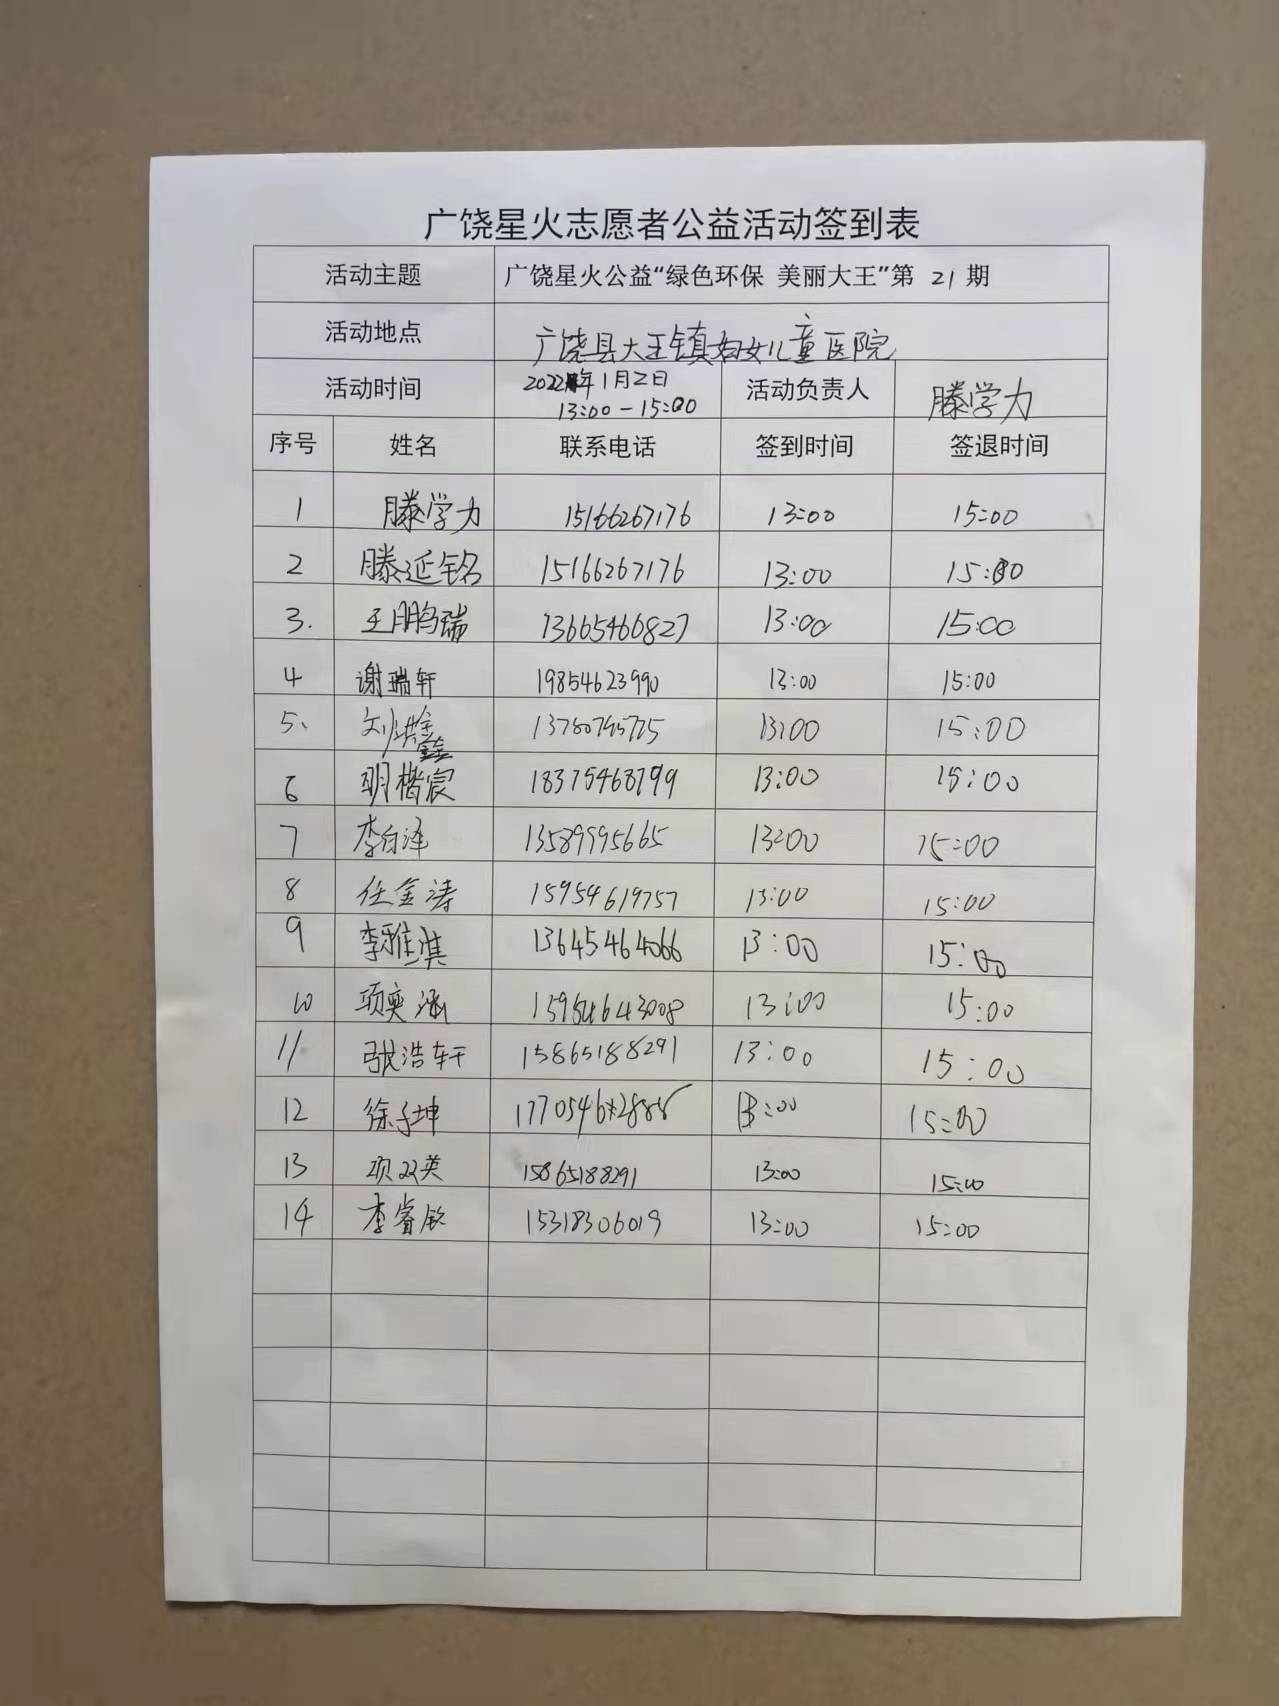 广饶星火志愿者公益活动签到表
活动主题 广饶星火公益“绿色环保 美丽大王”第 21 期
活动地点 广饶县大王镇妇女儿童医院
活动时间 2022年1月2日 13:00-15:00 活动负责人 滕学力
序号 姓名 联系电话 签到时间 签退时间
1 滕学力 15166267176 13:00 15:00
2 滕延铭 15166267176 13:00 15:00
3. 王鹏瑞 13665466827 13:00 15:00
4 谢瑞轩 19854623990 13:00 15:00
5、 刘洪鑫 13:00 15:00
6 明楷宸 18375468799 13:00 15:00
7 李白泽 13589995665 13:00 15:00
8 任金涛 15954619757 13:00 15:00
9 李雅淇 13645464066 13:00 15:00
10 项奕涵 15954643008 13:00 15:00
11 张浩轩 15865188291 13:00 15:00
12 徐子坤 13:00 15:00
13 项双英 15865188291 13:00 15:00
14 李睿钦 15318306019 13:00 15:00